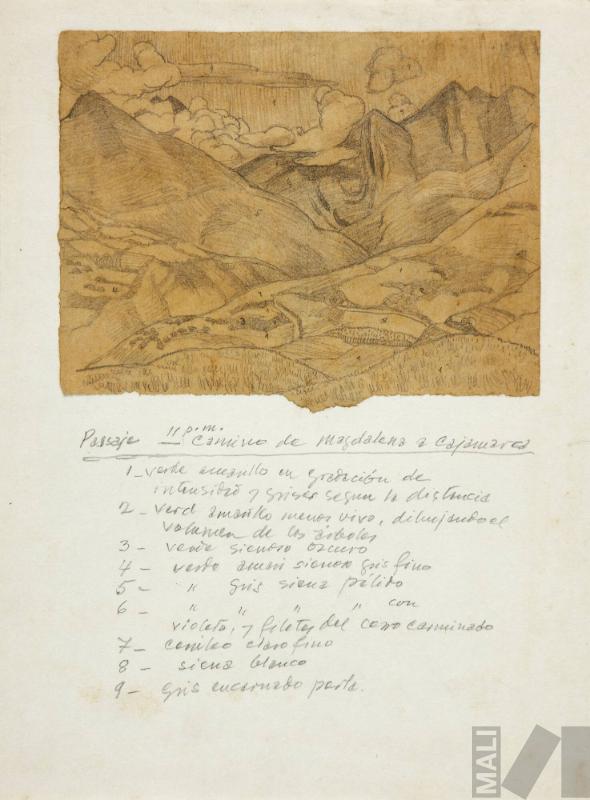 Paisaje 11 p.m. Camino de Magdalena a Cajamarca
1 - verde amarillo en gradación de
intensidad y grises segun la distancia
2 - verd amarillo menos vivo, dibujando el
volumen de los árboles
3 - verde sienoso oscuro
4 - verde amari sienoso gris fino
5 - " gris siena pálido
6 - " " " " con
violeta, y filetes del cerro carminado
7 - claro fino
8 - siena blanco
9 - gris encarnado perla.
MALI